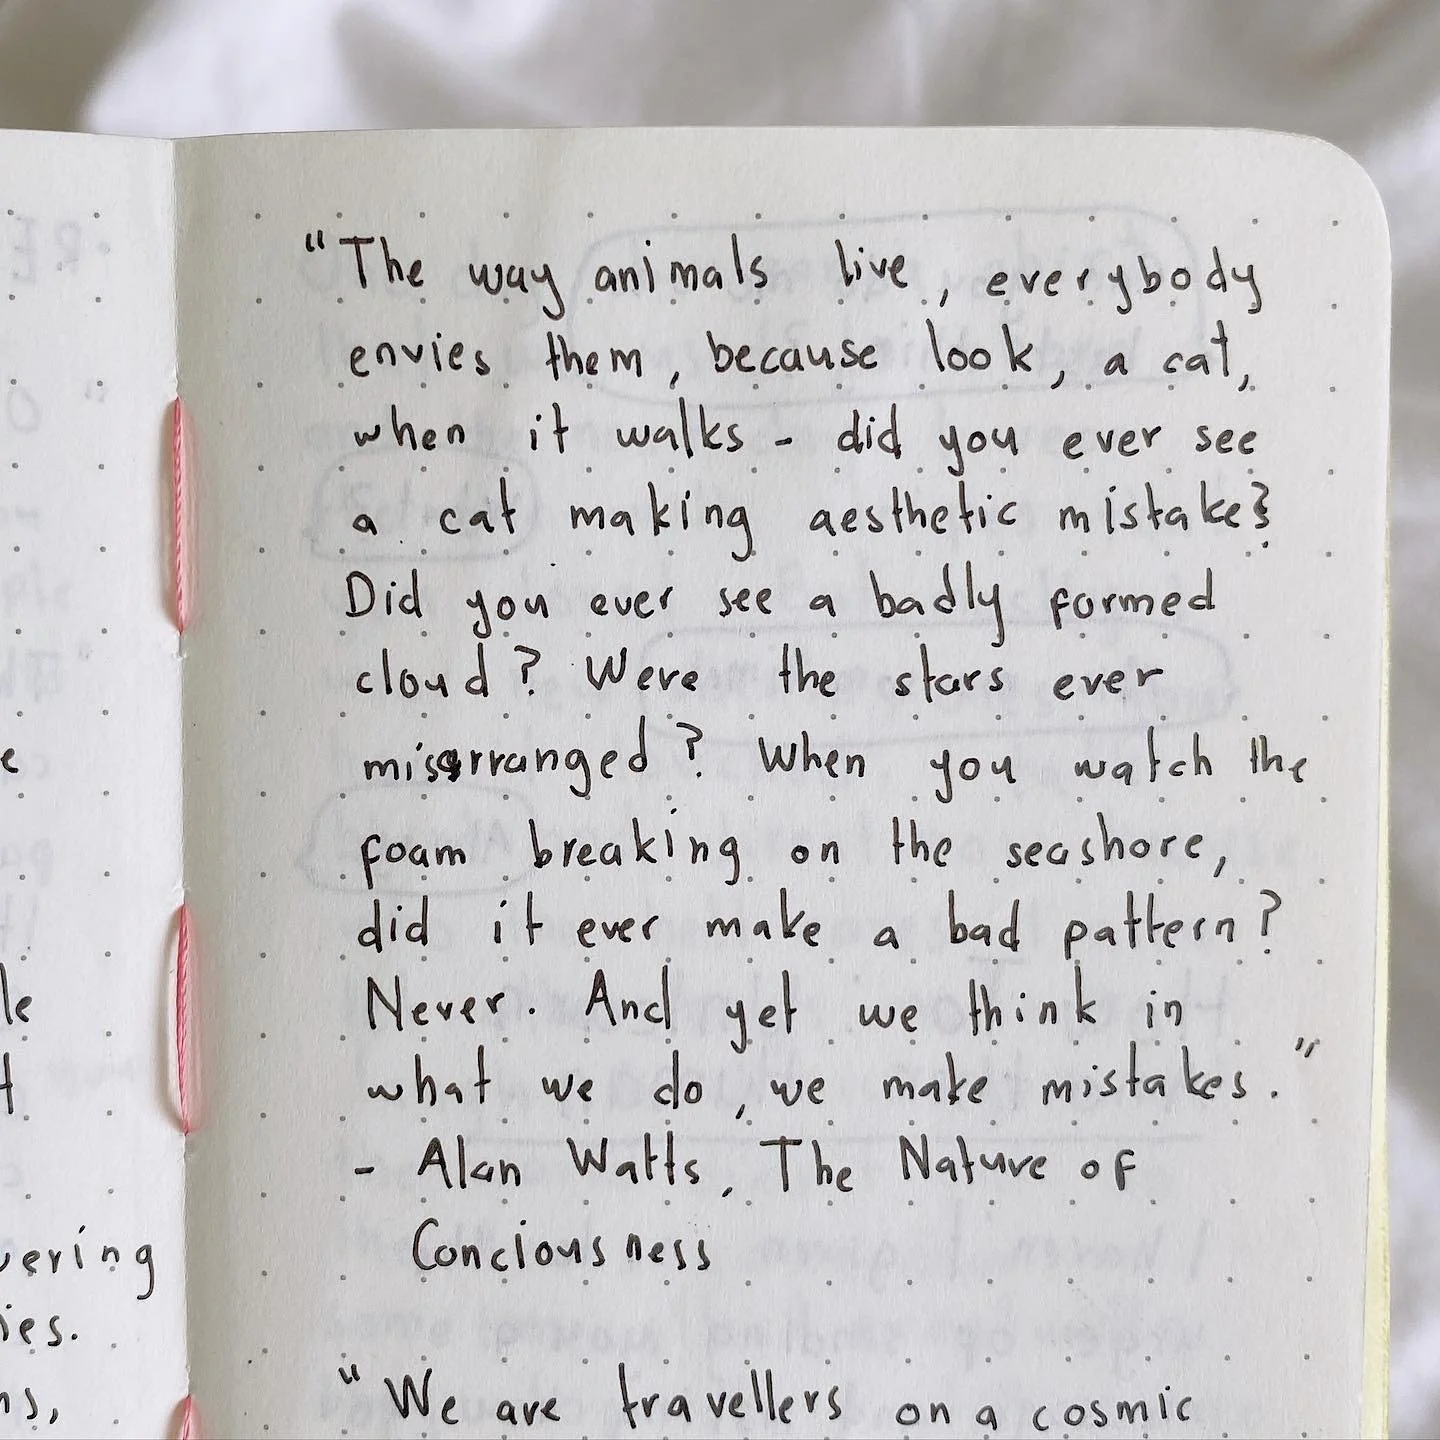 "The way animals live, everybody
envies them, because look, a cat,
when it walks - did you ever see
a cat making aesthetic mistake?
Did you ever see a badly formed
cloud? Were the stars ever
misarranged? When you watch the
foam breaking on the seashore,
did it ever make a bad pattern?
Never. And yet we think in
what we do, we make mistakes."
- Alan Watts, The Nature of
Conciousness
"We are travellers on a cosmic